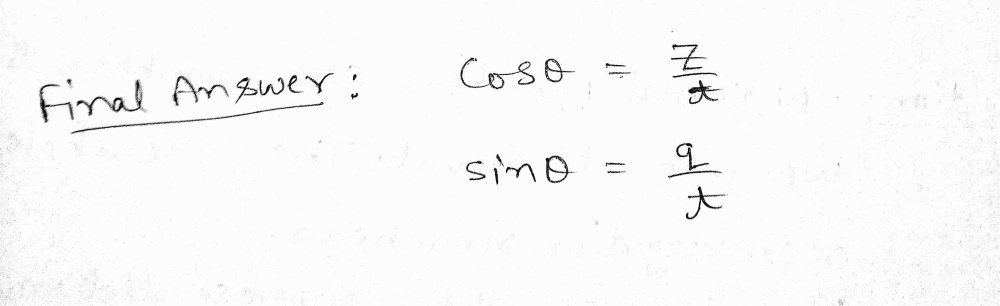 Final Answer: Cosθ = z/t
sinθ = q/t